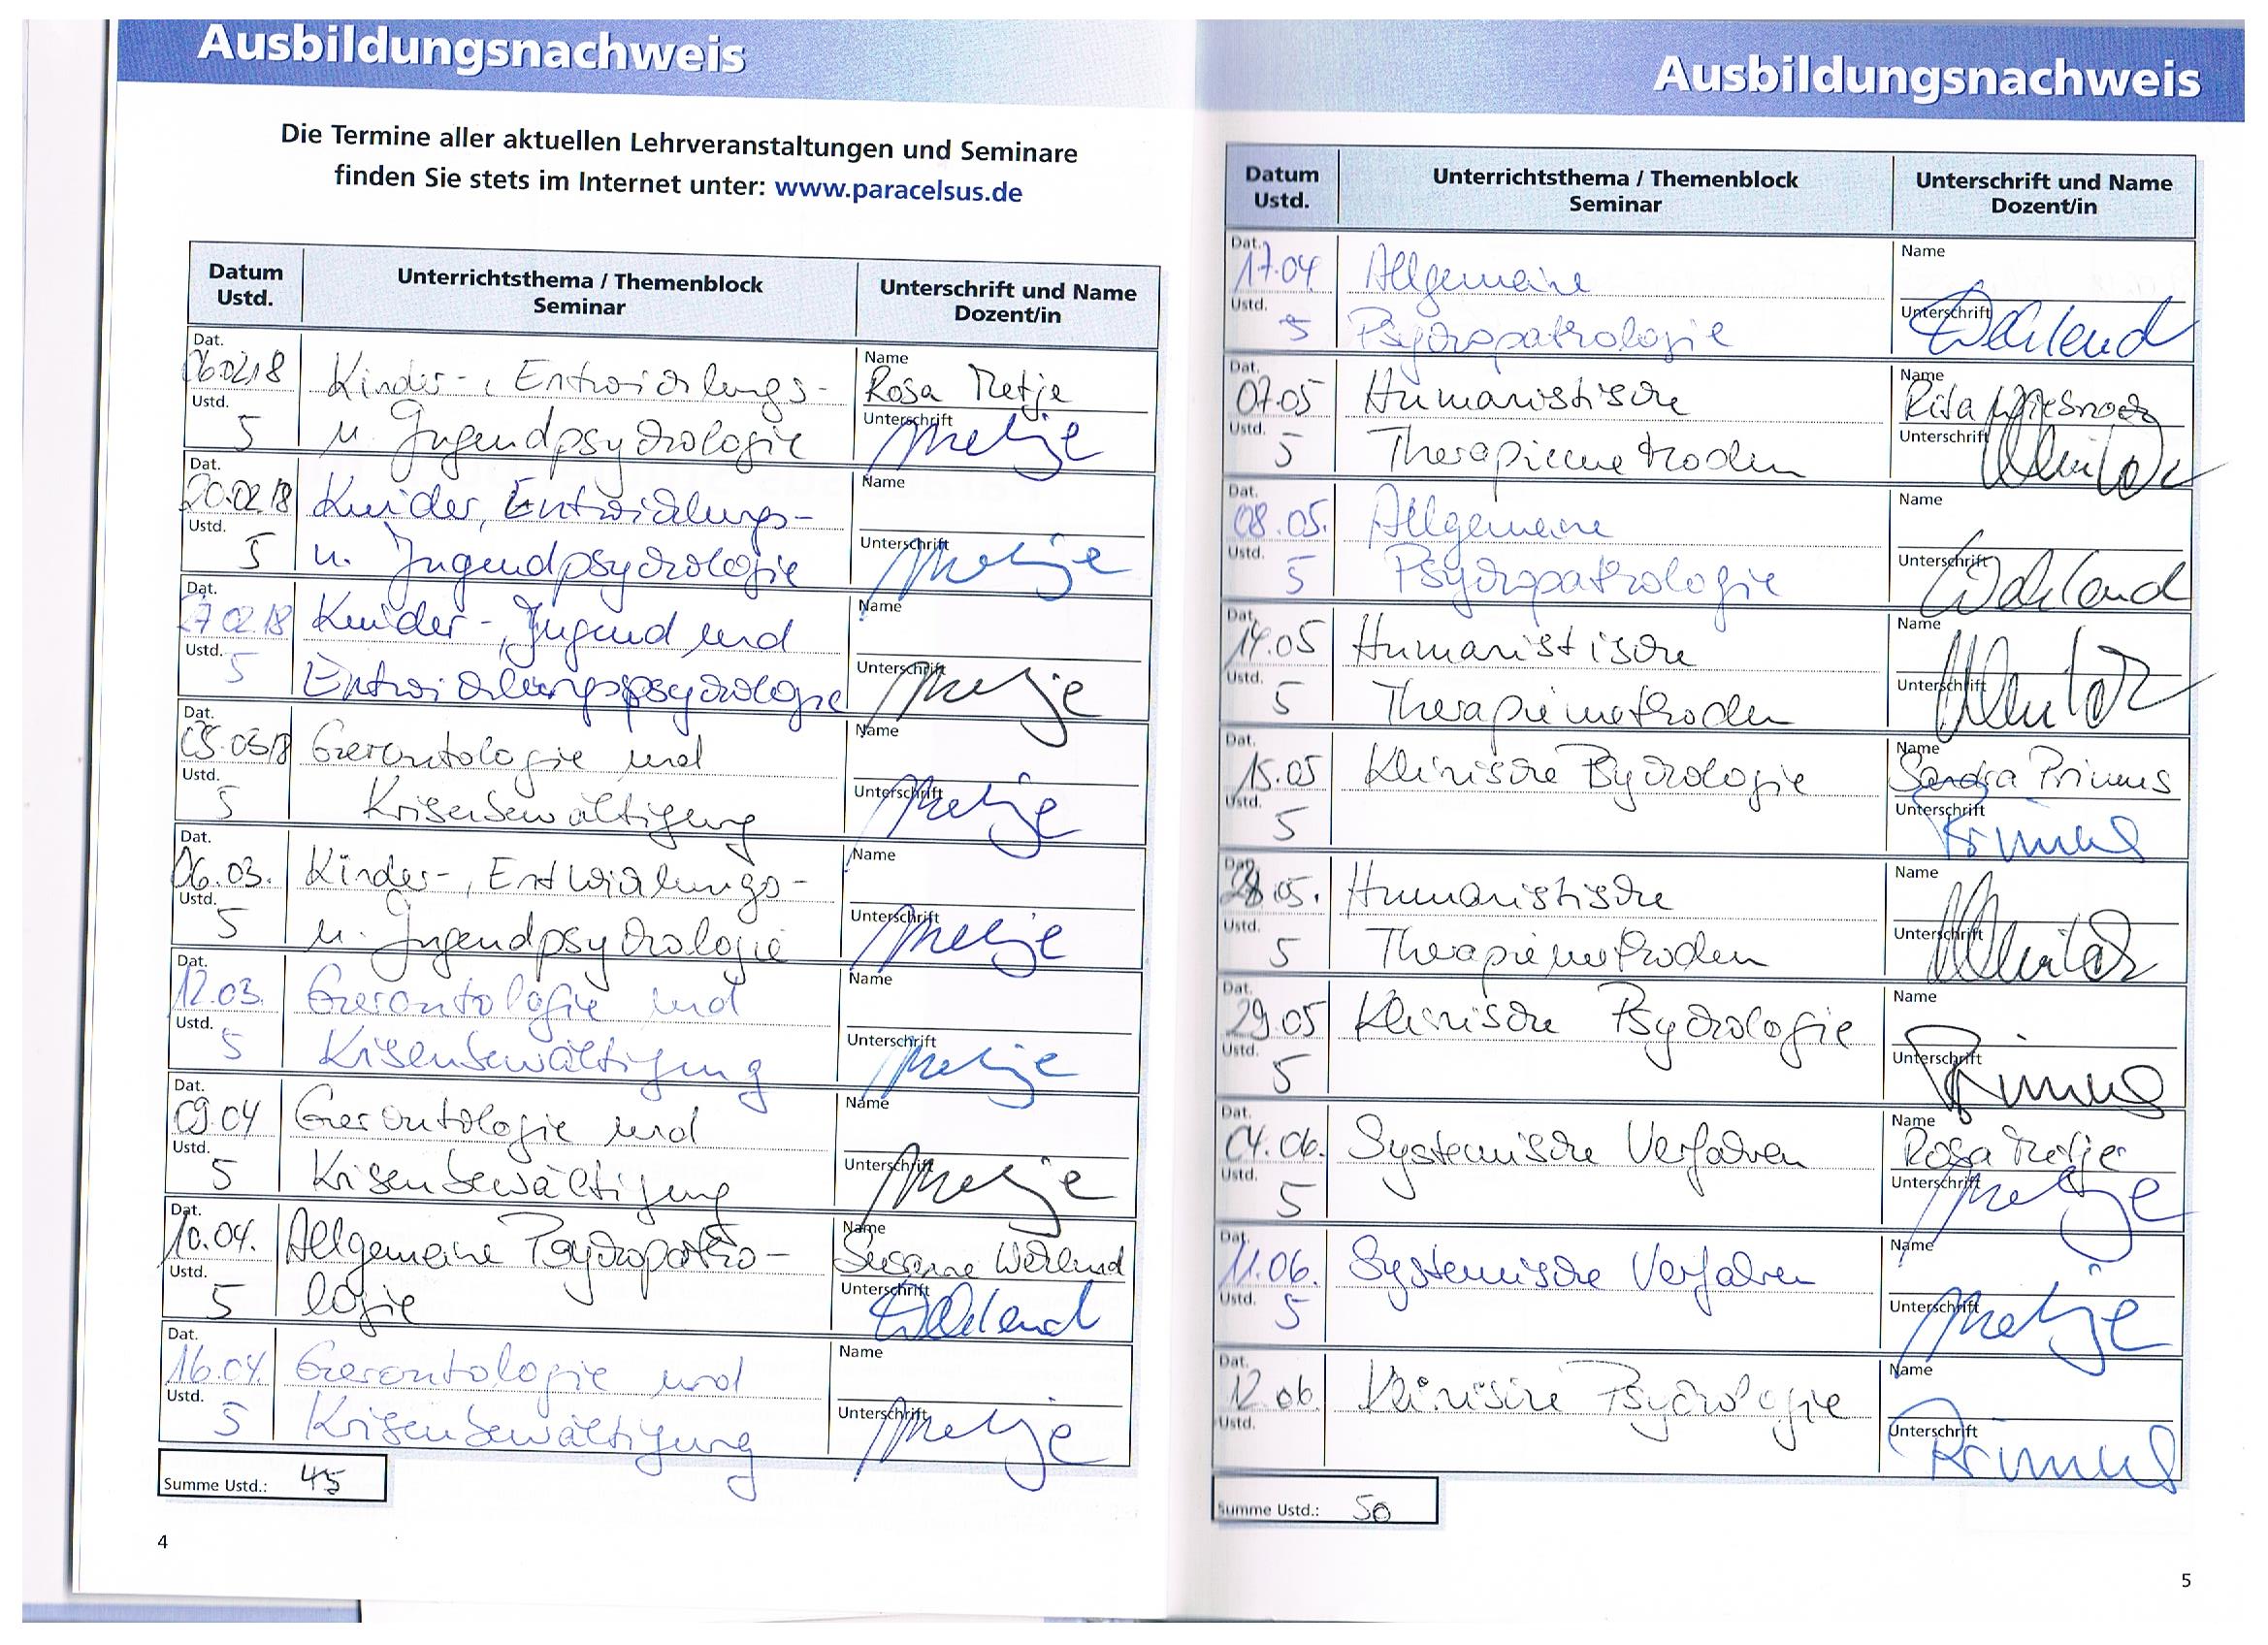 Ausbildungsnachweis
Die Termine aller aktuellen Lehrveranstaltungen und Seminare
finden Sie stets im Internet unter: www.paracelsus.de
Datum Ustd. Unterrichtsthema / Themenblock Seminar Unterschrift und Name Dozent/in
Dat. 06.02.18 Kinder-, Entwicklungs- Name Rosa Metje
Ustd. 5 u. Jugendpsychologie Unterschrift Metje
Dat. 20.02.18 Kinder, Entwicklungs- Name
Ustd. 5 u. Jugendpsychologie Unterschrift Metje
Dat. 27.02.18 Kinder-, Jugend und Name
Ustd. 5 Entwicklungspsychologie Unterschrift Metje
Dat. 05.03.18 Gerontologie und Name
Ustd. 5 Krisenbewältigung Unterschrift Metje
Dat. 06.03. Kinder-, Entwicklungs- Name
Ustd. 5 u. Jugendpsychologie Unterschrift Metje
Dat. 12.03. Gerontologie und Name
Ustd. 5 Krisenbewältigung Unterschrift Metje
Dat. 09.04 Gerontologie und Name
Ustd. 5 Krisenbewältigung Unterschrift Metje
Dat. 10.04. Allgemeine Psychopatho- Name Susanne
Ustd. 5 logie Unterschrift
Dat. 16.04. Gerontologie und Name
Ustd. 5 Krisenbewältigung Unterschrift Metje
Summe Ustd.: 45
4
Ausbildungsnachweis
Datum Ustd. Unterrichtsthema / Themenblock Seminar Unterschrift und Name Dozent/in
Dat. 17.04 Allgemeine Name
Ustd. 5 Psychopathologie Unterschrift
Dat. 07.05 Humanistische Name Rita
Ustd. 5 Therapiemethoden Unterschrift
Dat. 08.05. Allgemeine Name
Ustd. 5 Psychopathologie Unterschrift
Dat. 14.05 Humanistische Name
Ustd. 5 Therapiemethoden Unterschrift
Dat. 15.05 Klinische Psychologie Name Sandra Primus
Ustd. 5 Unterschrift Primus
Dat. 28.05. Humanistische Name
Ustd. 5 Therapiemethoden Unterschrift
Dat. 29.05 Klinische Psychologie Name
Ustd. 5 Unterschrift Primus
Dat. 04.06. Systemische Verfahren Name Rosa Metje
Ustd. 5 Unterschrift Metje
Dat. 11.06. Systemische Verfahren Name
Ustd. 5 Unterschrift Metje
Dat. 12.06. Klinische Psychologie Name
Ustd. Unterschrift Primus
Summe Ustd.: 50
5